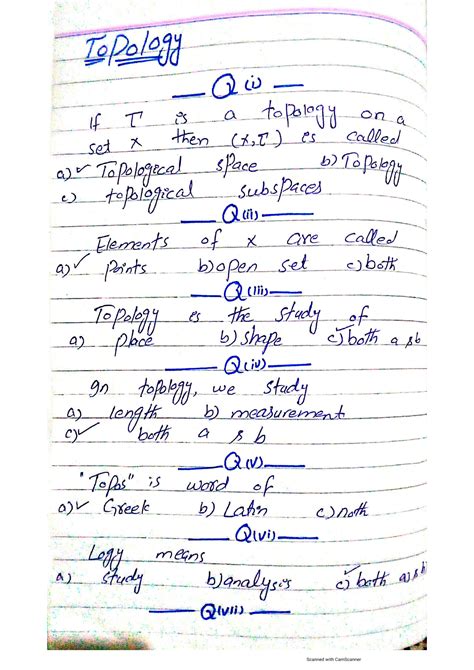 Topology
Q(i)
If τ is a topology on a
set X then (X,τ) is called
a)✓ Topological space b) Topology
c) topological subspaces
Q(ii)
Elements of X are called
a)✓ points b) open set c) both
Q(iii)
Topology is the study of
a) place b) shape c)✓ both a & b
Q(iv)
In topology, we study
a) length b) measurement
c)✓ both a & b
Q(v)
"Topos" is word of
a)✓ Greek b) Latin c) noth
Q(vi)
Logy means
a) study b) analysis c)✓ both a & b
Q(vii)
Scanned with CamScanner